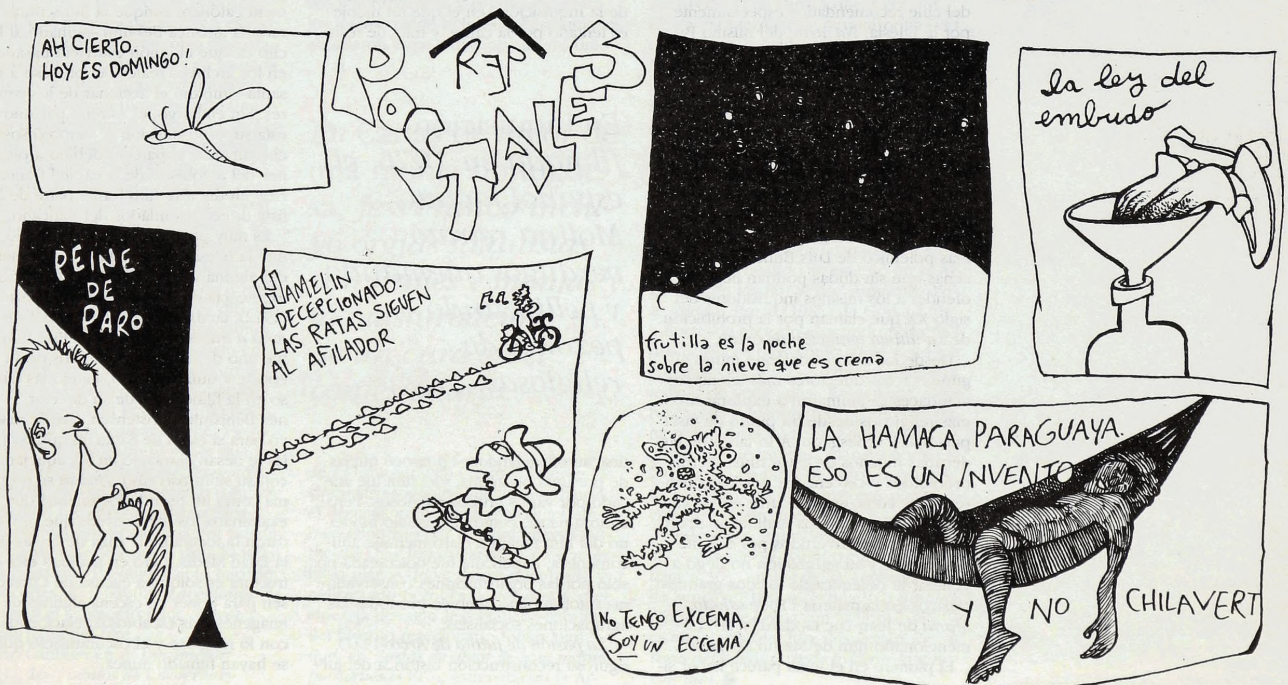 AH CIERTO.
HOY ES DOMINGO!
REP
POSTALES
la ley del
embudo
PEINE
DE
PARO
HAMELIN
DECEPCIONADO.
LAS RATAS SIGUEN
AL AFILADOR
frutilla es la noche
sobre la nieve que es crema
NO TENGO EXCEMA.
SOY UN ECCEMA
LA HAMACA PARAGUAYA.
ESO ES UN INVENTO
Y NO CHILAVERT